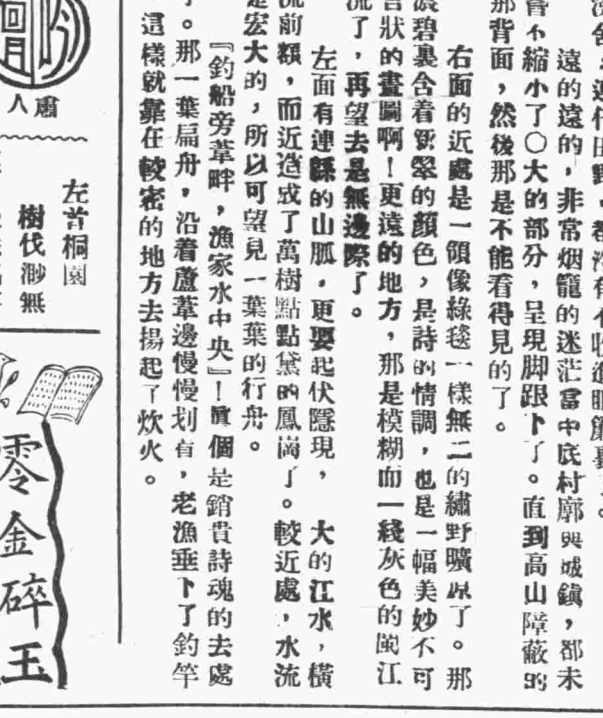 遠的遠的，非常烟籠的迷茫當中底村廓與城鎮，都未
嘗不縮小了〇大的部分，呈現脚跟下了。直到高山障蔽的
那背面，然後那是不能看得見的了。
右面的近處是一領像綠毯一樣無二的繡野曠原了。那
濃碧裏含着翠的顏色，是詩的情調，也是一幅美妙不可
言狀的畫圖啊！更遠的地方，那是模糊而一綫灰色的閩江
流了，再望去是無邊際了。
左面有連緜的山脈，更要起伏隱現，大的江水，橫
流前額，而近造成了萬樹點點黛的鳳崗了。較近處，水流
是宏大的，所以可望見一葉葉的行舟。
『釣船旁葦畔，漁家水中央』！眞個是銷貴詩魂的去處
了。那一葉扁舟，沿着蘆葦邊慢慢划着，老漁垂下了釣竿
這樣就靠在較密的地方去揚起了炊火。
肅人
左首桐園
樹伐渺無
零金碎玉